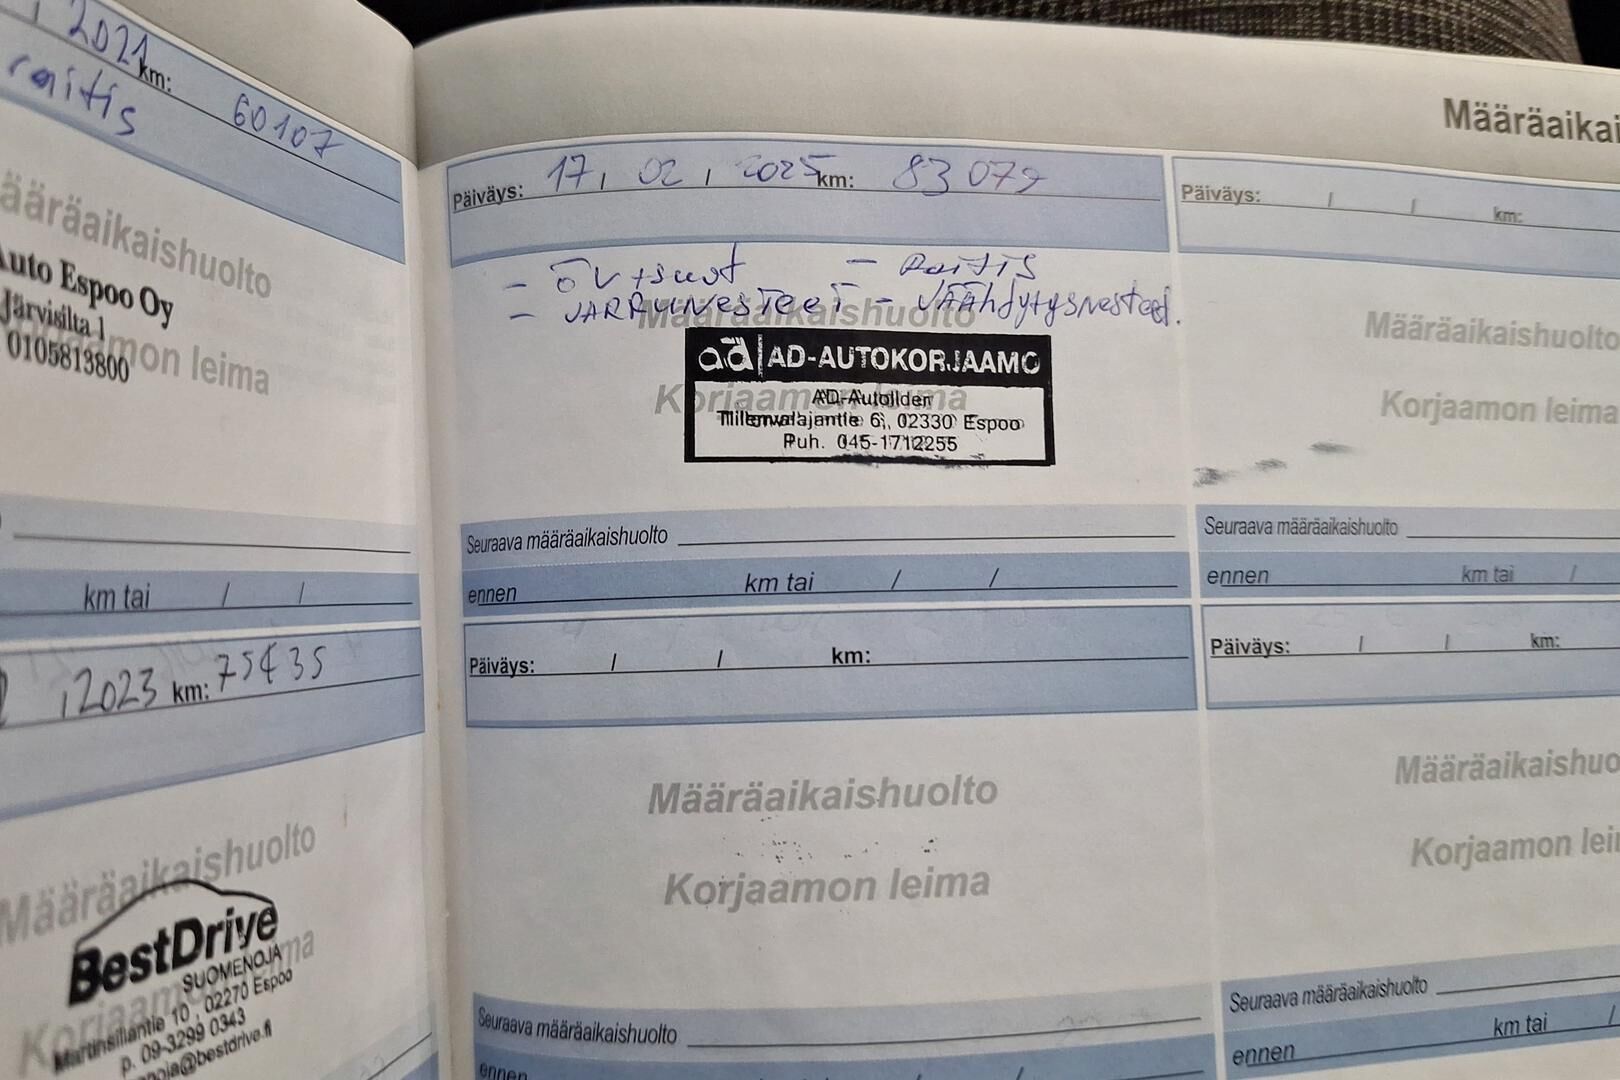 2021 km: 60107
raitis
ääräaikaishuolto
Auto Espoo Oy
Järvisilta 1
0105813800
mon leima
km tai / /
, 2023 km: 75435
Määräaikaishuolto
BestDrive
SUOMENOJA
Martinsillantie 10, 02270 Espoo
p. 09-3299 0343
noja@bestdrive.fi
Määräaikai
Päiväys: 17, 02, 2025 km: 83 079
- öv +suod - Raitis
- JARRUNESTEET - JÄÄhdytysnesteet.
Määräaikaishuolto
ad AD-AUTOKORJAAMO
Korjaamon leima
02330 Espoo
Puh. 045-1712255
Seuraava määräaikaishuolto
ennen km tai / /
Päiväys: / / km:
Määräaikaishuolto
Korjaamon leima
Seuraava määräaikaishuolto
ennen / /
Päiväys: / / km:
Määräaikaishuolto
Korjaamon leima
Seuraava määräaikaishuolto
ennen km tai /
Päiväys: / / km:
Määräaikaishuo
Korjaamon lei
Seuraava määräaikaishuolto
ennen km tai /